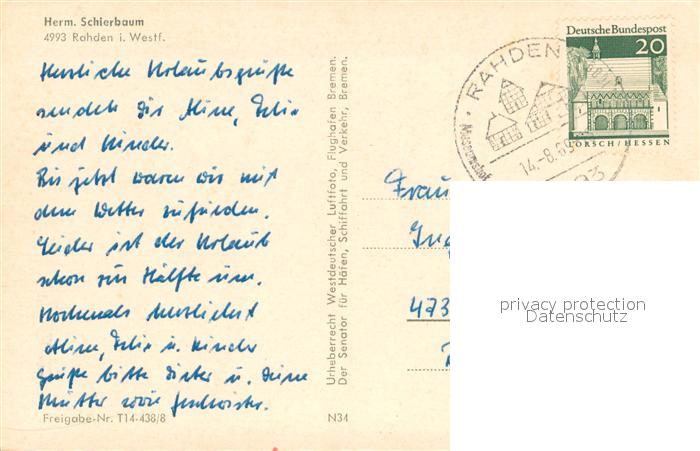 Herm. Schierbaum
4993 Rahden i. Westf.
Herzliche Urlaubsgrüße
sendet Dir Aline,
und Kinder.
Bis jetzt waren wir mit
dem Wetter zufrieden.
Leider ist der Urlaub
schon zur Hälfte um.
Nochmals herzlichst
Aline, u. Kinder
Grüße bitte Dieter u. Deine
Mutter sowie Geschwister.
Freigabe-Nr. T14-438/8
N34
Urheberrecht Westdeutscher Luftfoto, Flughafen Bremen.
Der Senator für Häfen, Schiffahrt und Verkehr, Bremen.
RAHDEN
Museumshof
14.-8.69
Deutsche Bundespost
20
LORSCH/HESSEN
Frau
473
privacy protection
Datenschutz